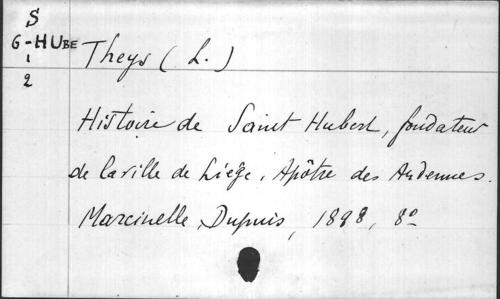 S
G-HUBE
1
2
Theys (L.)
Histoire de Saint Hubert, fondateur
de la ville de Liége, Apôtre des Ardennes.
Marcinelle, Dupuis, 1898, 8º